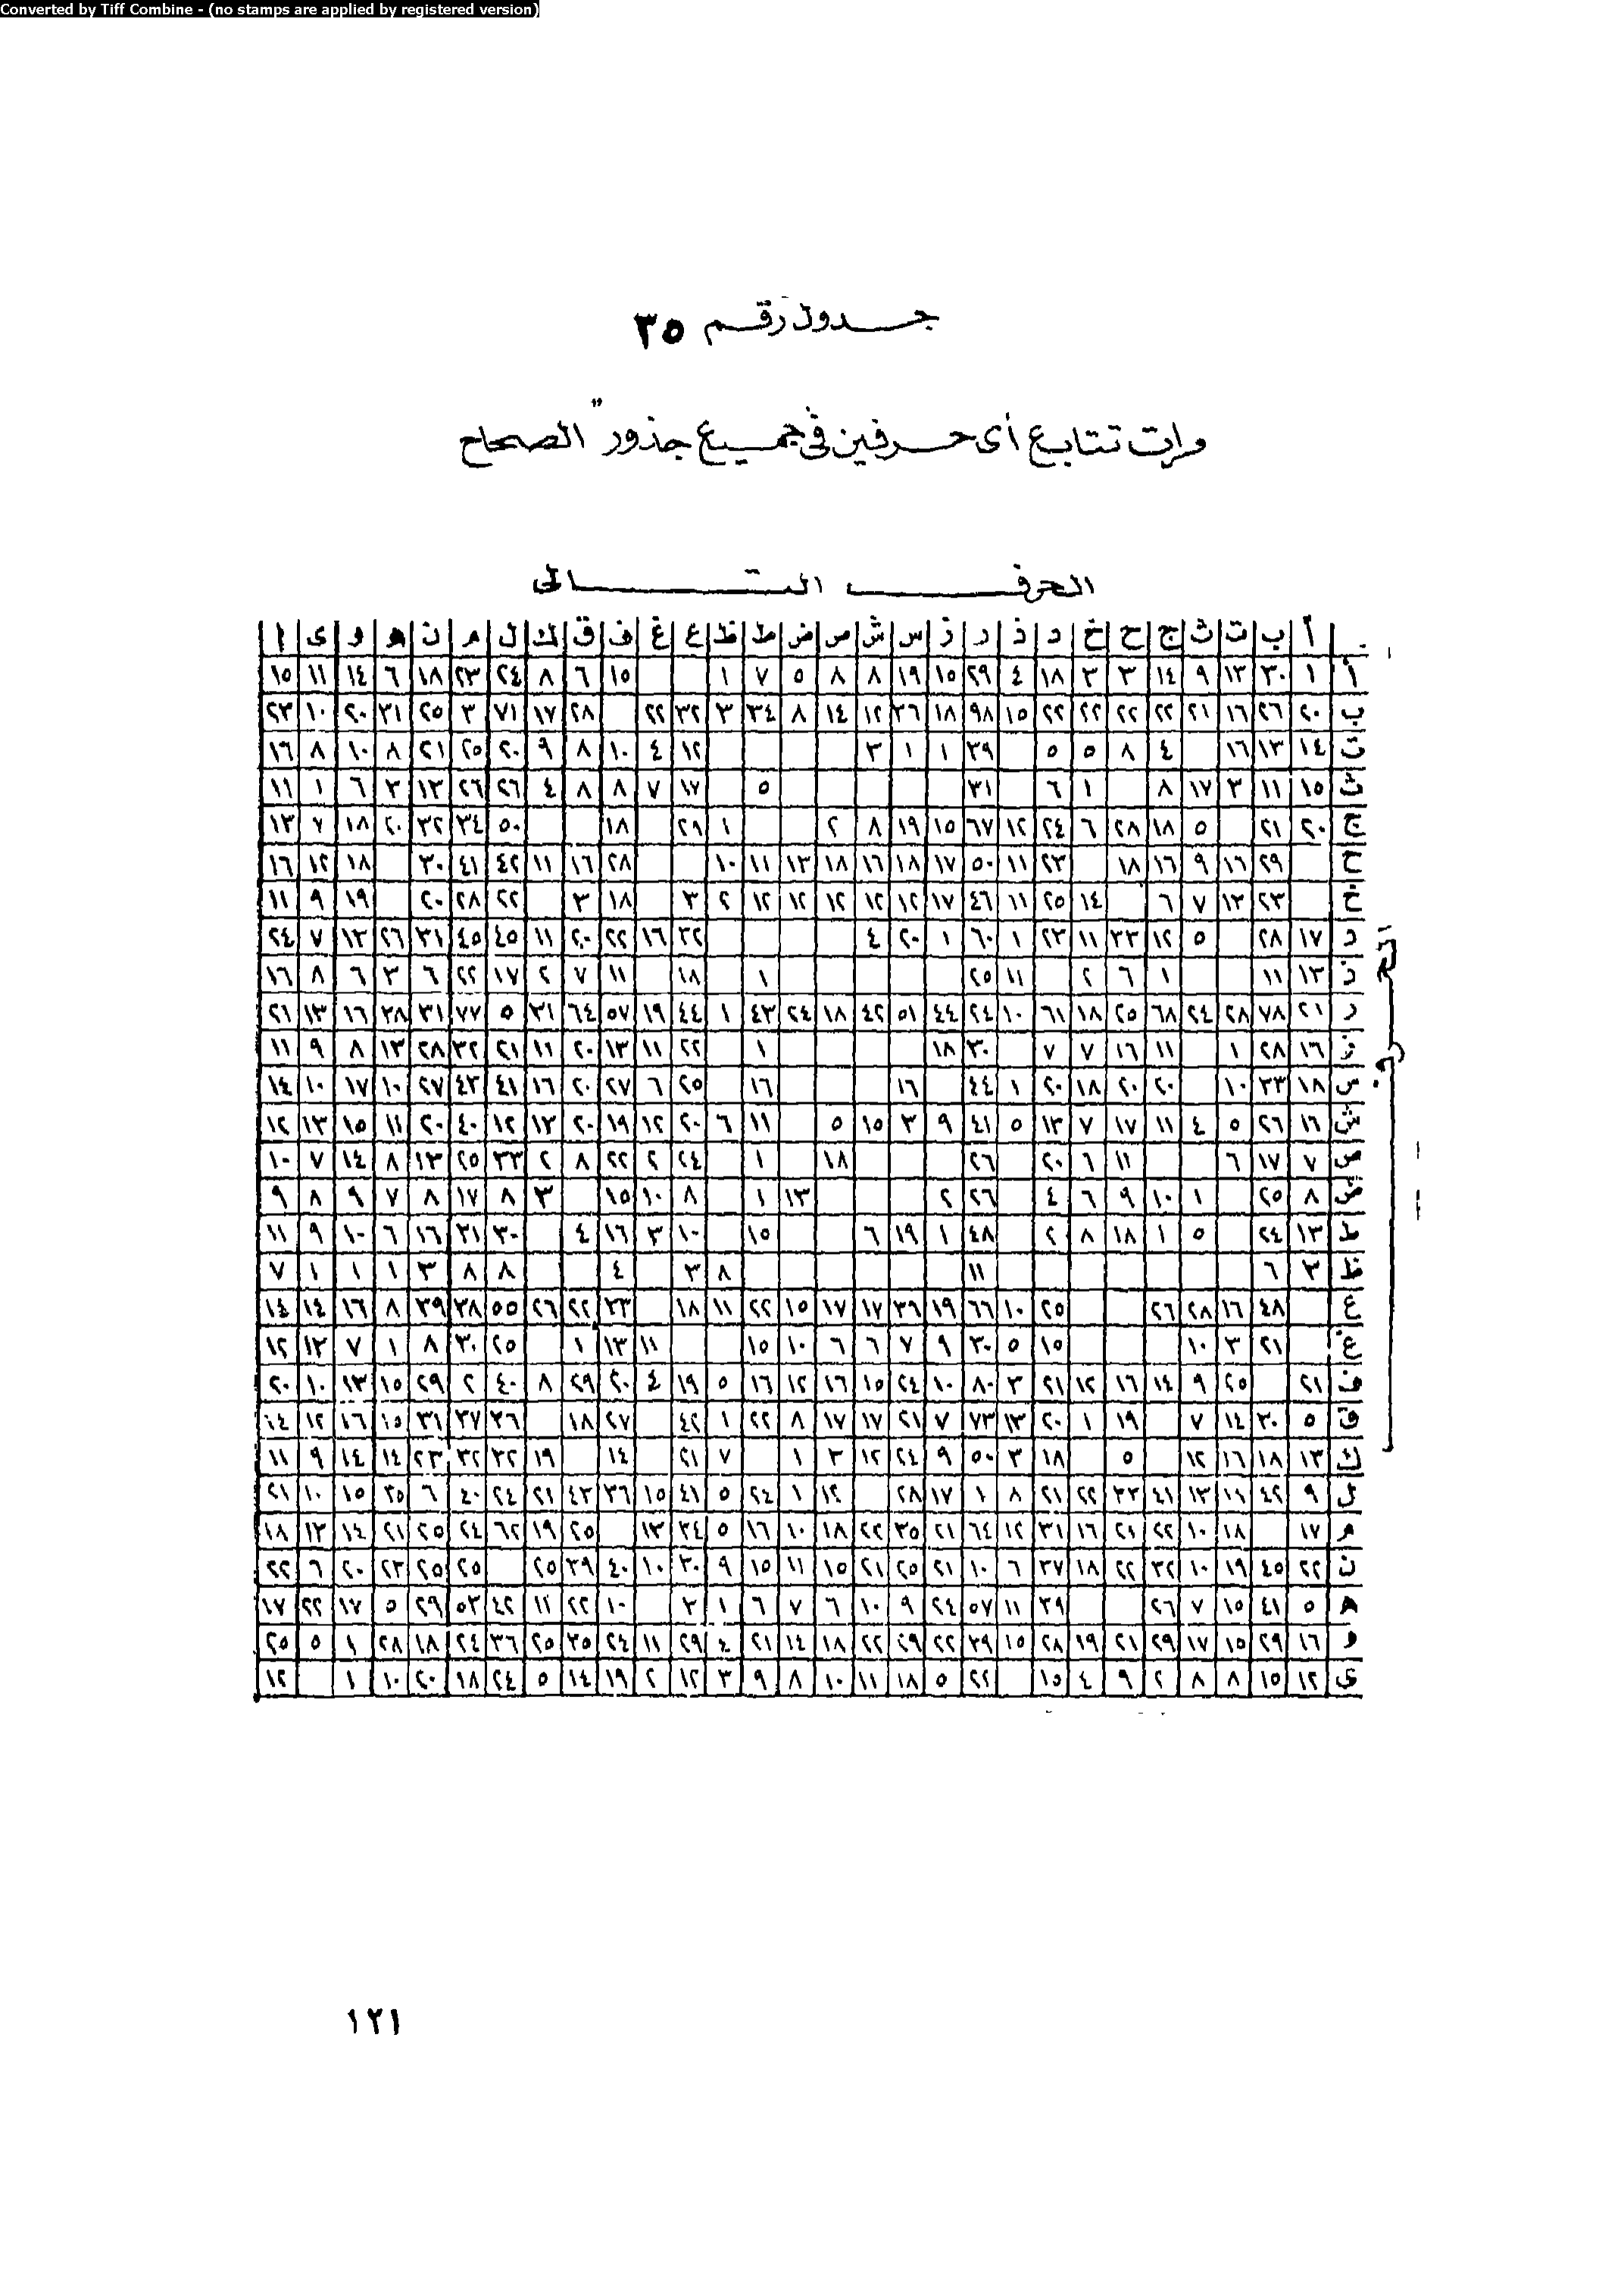 Converted by Tiff Combine - (no stamps are applied by registered version)
جدول رقم ٣٥
مرات تتابع أى حرفين فى جميع جذور "الصحاح
الحرف التالى
أ ب ت ث ج ح خ د ذ ر ز س ش ص ض ط ظ ع غ ف ق ك ل م ن ه و ى ا
أ ١ ٣٠ ١٣ ٩ ١٤ ٣ ٣ ١٨ ٤ ٢٩ ١٥ ١٩ ٨ ٨ ٥ ٧ ١ ١٥ ٦ ٨ ٢٤ ٢٣ ١٨ ٦ ١٤ ١١ ١٥
ب ٢٠ ٢٦ ١٦ ٢١ ٢٢ ٢٢ ٢٢ ٢٢ ١٥ ٩٨ ١٨ ٢٦ ١٢ ١٤ ٨ ٣٤ ٣ ٣٢ ٢٢ ٢٨ ١٧ ٧١ ٣ ٢٥ ٢١ ٢٠ ١٠ ٢٣
ت ١٤ ١٣ ١٦ ٤ ٨ ٥ ٥ ٢٩ ١ ١ ٣ ١٢ ٤ ١٠ ٨ ٩ ٢٠ ٢٥ ٢١ ٨ ١٠ ٨ ١٦
ث ١٥ ١١ ٣ ١٧ ٨ ١ ٦ ٣١ ٥ ١٧ ٧ ٨ ٨ ٤ ٢٦ ٢٦ ١٣ ٣ ٦ ١ ١١
ج ٢٠ ٢١ ٥ ١٨ ٢٨ ٦ ٢٤ ١٢ ٦٧ ١٥ ١٩ ٨ ٢ ١ ٢٨ ١٨ ٥٠ ٣٤ ٣٢ ٢٠ ١٨ ٧ ١٣
ح ٢٩ ١٦ ٩ ١٦ ١٨ ٢٣ ١١ ٥٠ ١٧ ١٨ ١٦ ١٨ ١٣ ١١ ١٠ ٢٨ ١٦ ١١ ٤٢ ٤١ ٣٠ ١٨ ١٢ ١٦
خ ٢٣ ١٣ ٧ ٦ ١٤ ٢٥ ١١ ٤٦ ١٧ ١٢ ١٢ ١٢ ١٢ ١٢ ٢ ٣ ١٨ ٣ ٢٢ ٢٨ ٢٠ ١٩ ٩ ١١
د ١٧ ٢٨ ٥ ١٢ ٢٣ ١١ ٢٣ ١ ٦٠ ١ ٢٠ ٤ ٢٢ ١٦ ٢٢ ٢٠ ١١ ٤٥ ٤٥ ٣١ ٢٦ ١٣ ٧ ٢٤
ذ ١٣ ١١ ١ ٦ ٢ ١١ ٢٥ ١ ١٨ ١١ ٧ ٢ ١٧ ٢٢ ٦ ٣ ٦ ٨ ١٦
ر ٢١ ٧٨ ٢٨ ٢٤ ٦٨ ٢٥ ١٨ ٦١ ١٠ ٢٤ ٤٤ ٥١ ٤٢ ١٨ ٢٤ ٤٣ ١ ٤٤ ١٩ ٥٧ ٦٤ ٣١ ٥ ٧٧ ٣١ ٢٨ ١٦ ١٣ ٢١
ز ١٦ ٢٨ ١ ١١ ١٦ ٧ ٧ ٣٠ ١٨ ١ ٢٢ ١١ ١٣ ٢٠ ١١ ٢١ ٣٢ ٢٨ ١٣ ٨ ٩ ١١
س ١٨ ٣٣ ١٠ ٢٠ ٢٠ ١٨ ٢٠ ١ ٤٤ ١٦ ١٦ ٢٥ ٦ ٢٧ ٢٠ ١٦ ٤١ ٤٣ ٢٧ ١٠ ١٧ ١٠ ١٤
ش ١٦ ٢٦ ٥ ٤ ١١ ١٧ ٧ ١٣ ٥ ٤١ ٩ ٣ ١٥ ٥ ١١ ٦ ٢٠ ١٢ ١٩ ٢٠ ١٣ ١٢ ٤٠ ٢٠ ١١ ١٥ ١٣ ١٢
ص ٧ ١٧ ٦ ١١ ٦ ٢٠ ٢٦ ١٨ ١ ٢٤ ٢ ٢٢ ٨ ٢ ٣٣ ٢٥ ١٣ ٨ ١٤ ٧ ١٠
ض ٨ ٢٥ ١ ١٠ ٩ ٦ ٤ ٢٦ ٢ ١٣ ١ ٨ ١٠ ١٥ ٣ ٨ ١٧ ٨ ٧ ٩ ٨ ٩
ط ١٣ ٢٤ ٥ ١ ١٨ ٨ ٢ ٤٨ ١ ١٩ ٦ ١٥ ١٠ ٣ ١٦ ٤ ٣٠ ٣١ ١٦ ٦ ١٠ ٩ ١١
ظ ٣ ٦ ١١ ٨ ٣ ٤ ٨ ٨ ٣ ١ ١ ١ ٧
ع ٤٨ ١٦ ٢٨ ٢٦ ٢٥ ١٠ ٦٦ ١٩ ٣٦ ١٧ ١٧ ١٥ ٢٢ ١١ ١٨ ٢٣ ٢٢ ٢٦ ٥٥ ٣٨ ٣٩ ٨ ١٦ ١٤ ١٤
غ ٢١ ٣ ١٠ ١٥ ٥ ٣٠ ٩ ٧ ٦ ٦ ١٠ ١٥ ١١ ١٣ ١ ٢٥ ٣٠ ٨ ١ ٧ ١٣ ١٢
ف ٢١ ٢٥ ٩ ١٤ ١٦ ١٢ ٢١ ٣ ٨٠ ١٠ ٢٤ ١٥ ١٦ ١٢ ١٦ ٥ ١٩ ٤ ٢٠ ٢٩ ٨ ٤٠ ٢ ٢٩ ١٥ ١٣ ١٠ ٢٠
ق ٥ ٣٠ ١٤ ٧ ١٩ ١ ٢٠ ١٣ ٧٣ ٧ ٢١ ١٧ ١٧ ٨ ٢٢ ١ ٤٢ ٢٧ ١٨ ٣٦ ٣٧ ٣١ ١٥ ١٦ ١٢ ١٤
ك ١٣ ١٨ ١٦ ١٢ ٥ ١٨ ٣ ٥٠ ٩ ٢٤ ١٢ ٣ ١ ٧ ٢١ ١٤ ١٩ ٣٢ ٣٢ ٢٣ ١٤ ١٤ ٩ ١١
ل ٩ ٤٢ ١١ ١٣ ٤١ ٣٣ ٢٢ ٢١ ٨ ١ ١٧ ٢٨ ١٢ ١ ٢٤ ٥ ٤١ ١٥ ٣٦ ٤٣ ٢١ ٢٤ ٤٠ ٦ ٣٥ ١٥ ١٠ ٢١
م ١٧ ١٨ ١٠ ٢٢ ٢١ ١٦ ٣١ ١٢ ٦٤ ٢١ ٣٥ ٢٢ ١٨ ١٠ ١٦ ٥ ٣٤ ١٣ ٢٥ ١٩ ٦٢ ٢٤ ٢٥ ٢١ ١٤ ١٣ ١٨
ن ٢٢ ٤٥ ١٩ ١٠ ٣٢ ٢٢ ١٨ ٣٧ ٦ ١٠ ٢١ ٢٥ ٢١ ١٥ ١١ ١٥ ٩ ٣٠ ١٠ ٤٠ ٣٩ ٢٥ ٢٥ ٢٥ ٢٣ ٢٠ ٦ ٢٢
ه ٥ ٤١ ١٥ ٧ ٢٦ ٣٩ ١١ ٥٧ ٢٤ ٩ ١٠ ٦ ٧ ٦ ١ ٣ ١٠ ٢٢ ١١ ٤٢ ٥٣ ٢٩ ٥ ١٧ ٢٢ ١٧
و ١٦ ٢٩ ١٥ ١٧ ٢٩ ٢١ ١٩ ٢٨ ١٥ ٣٩ ٢٢ ٢٩ ٢٢ ١٨ ١٤ ٢١ ٤ ٢٩ ١١ ٢٤ ٣٥ ٢٥ ٣٦ ٢٤ ١٨ ٢٨ ١ ٥ ٢٥
ى ١٢ ١٥ ٨ ٨ ٢ ٩ ٤ ١٥ ٢٢ ٥ ١٨ ١١ ١٠ ٨ ٩ ٣ ١٢ ٢ ١٩ ١٤ ٥ ٢٤ ١٨ ٢٠ ١٠ ١ ١٢
١٢١